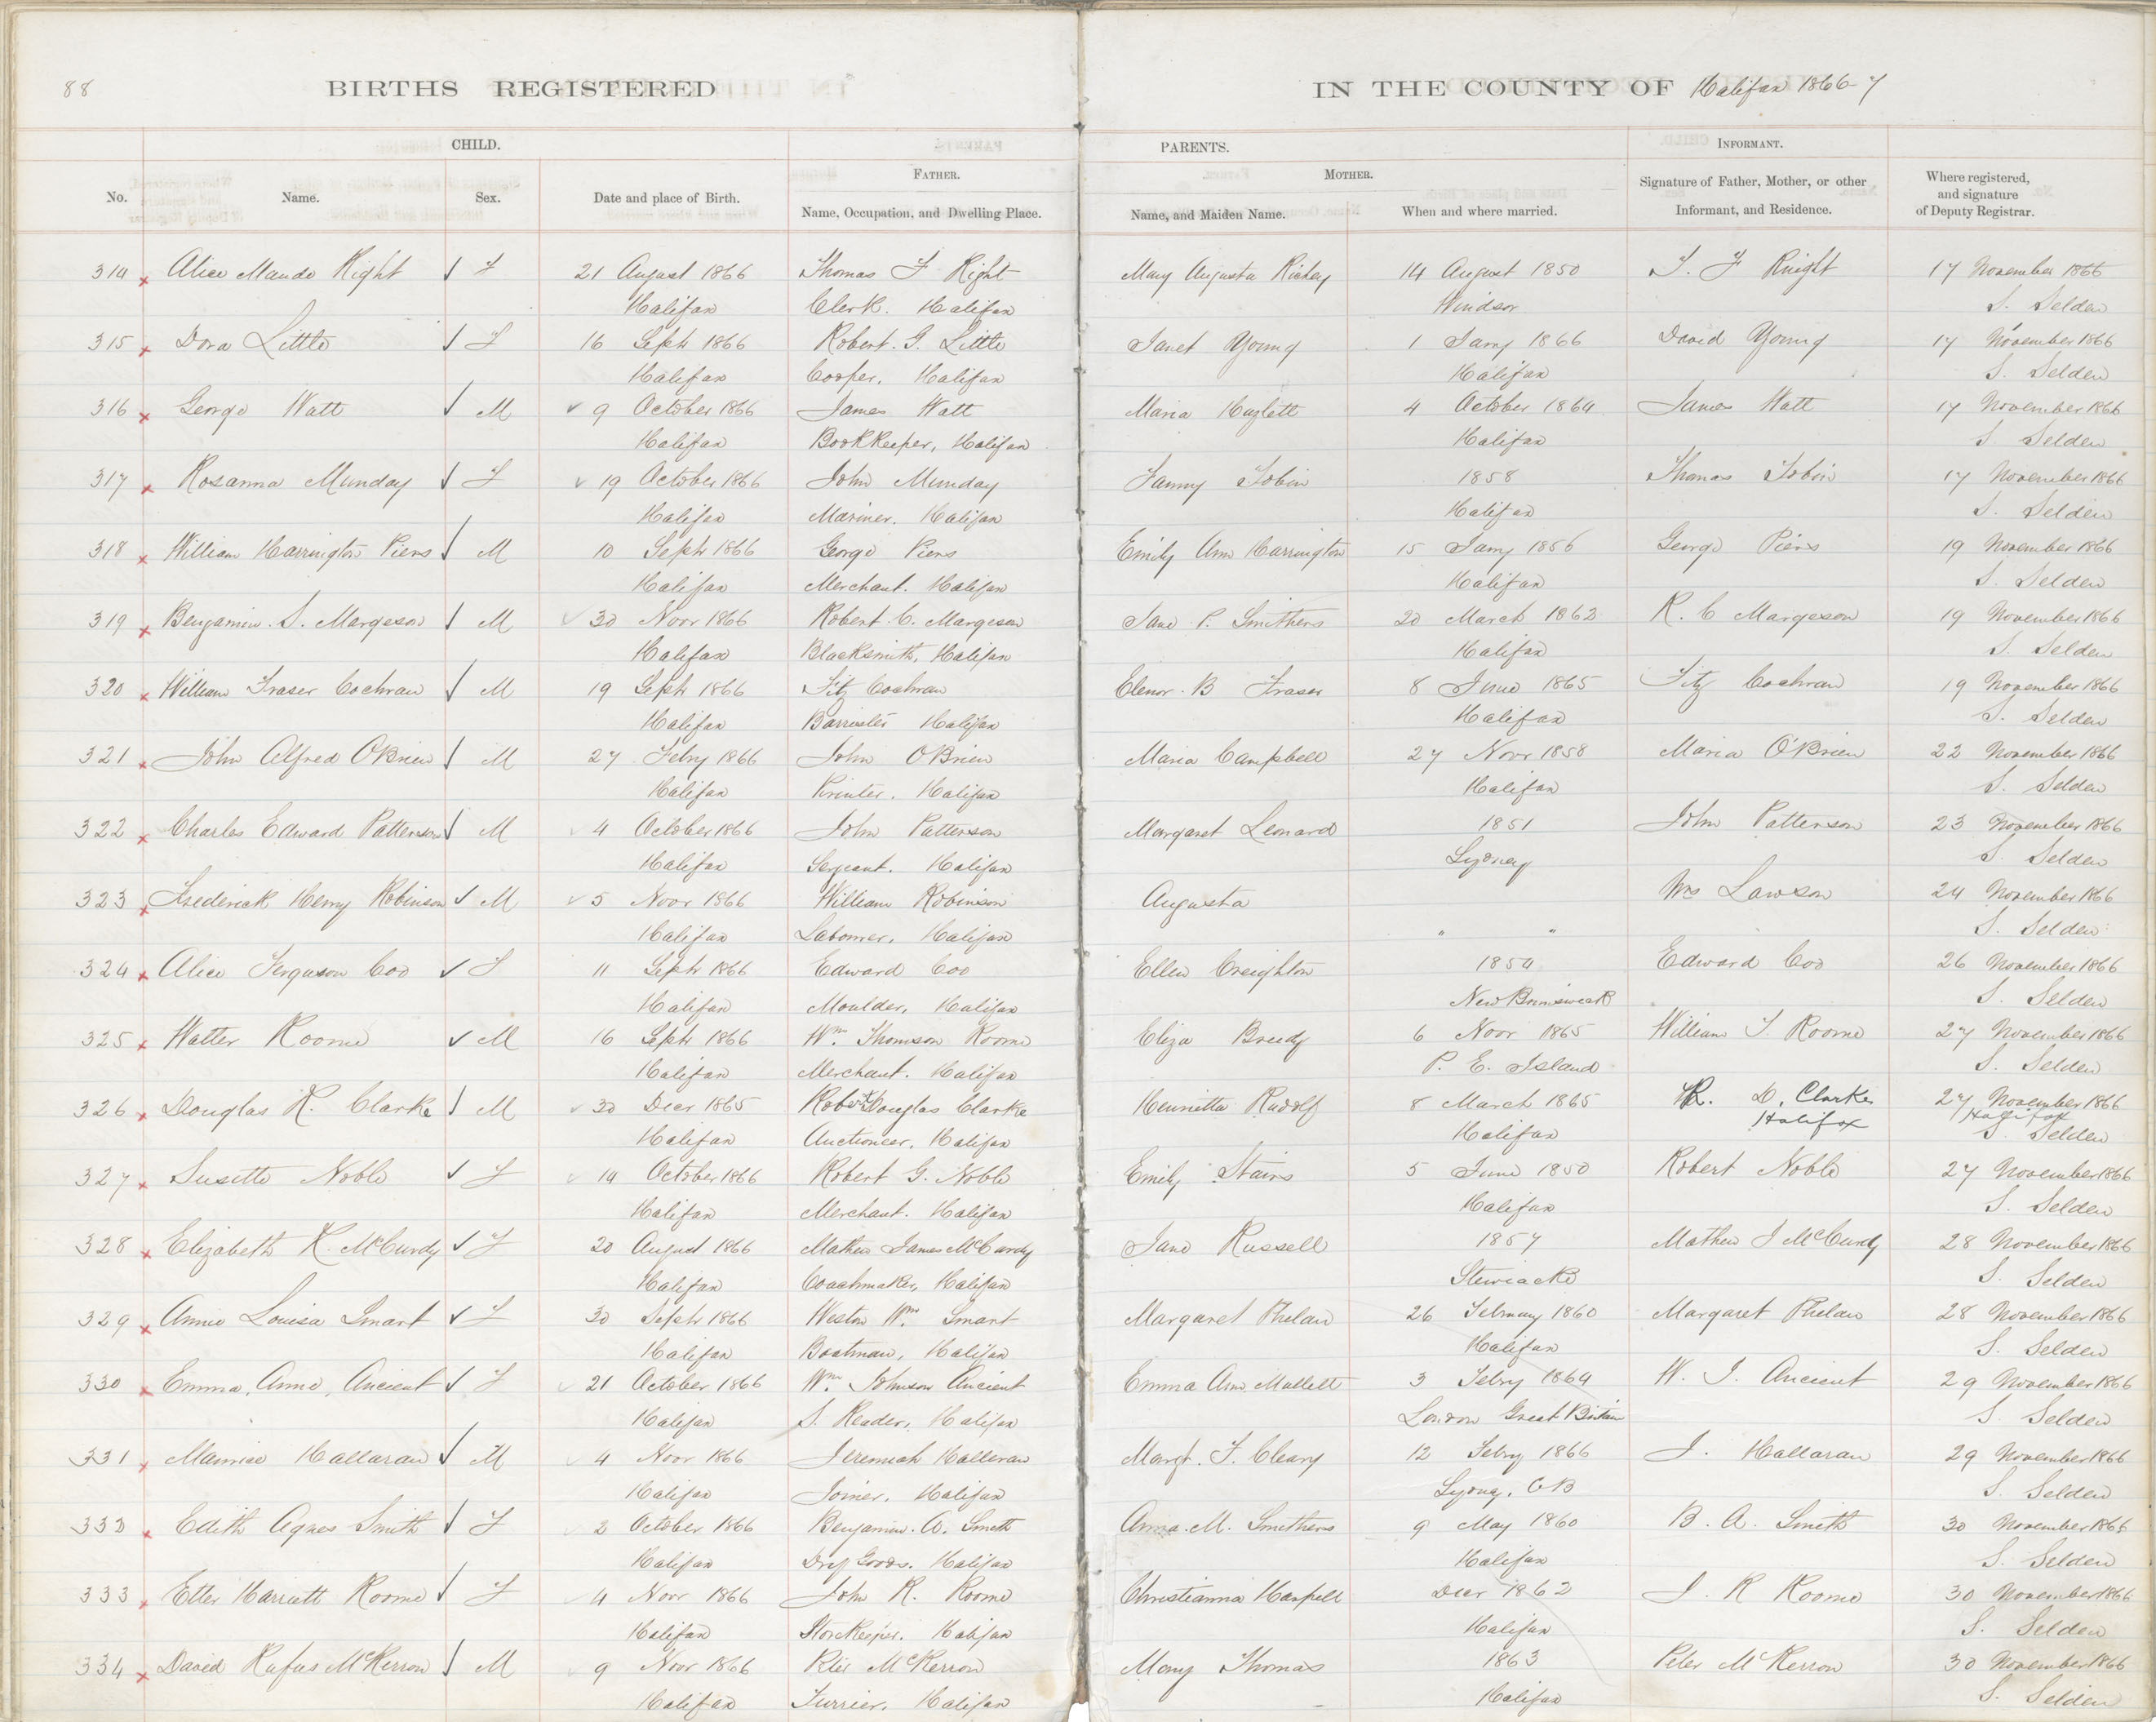 88
BIRTHS REGISTERED IN THE COUNTY OF Halifax 1866-7
CHILD. PARENTS. INFORMANT.
FATHER. MOTHER.
No. Name. Sex. Date and place of Birth. Name, Occupation, and Dwelling Place. Name, and Maiden Name. When and where married. Signature of Father, Mother, or other Informant, and Residence. Where registered, and signature of Deputy Registrar.
314 Alice Maude Kight F 21 August 1866 Thomas F Kight Mary Augusta Richey 14 August 1850 T. F Knight 17 November 1866
Halifax Clerk. Halifax Windsor S. Selden
315 Dora Little F 16 Septr 1866 Robert. G. Little Janet Young 1 Jany 1866 David Young 17 November 1866
Halifax Cooper. Halifax Halifax S. Selden
316 George Watt M 9 October 1866 James Watt Maria Hazlett 4 October 1864 James Watt 17 November 1866
Halifax Bookkeeper, Halifax Halifax S. Selden
317 Rosanna Munday F 19 October 1866 John Munday Fanny Tobin 1858 Thomas Tobin 17 November 1866
Halifax Mariner. Halifax Halifax S. Selden
318 William Harrington Piers M 10 Septr 1866 George Piers Emily Ann Harrington 15 Jany 1856 George Piers 19 November 1866
Halifax Merchant. Halifax Halifax S. Selden
319 Benjamin. S. Margeson M 30 Novr 1866 Robert. C. Margeson Jane P. Smithers 20 March 1862 R. C Margeson 19 November 1866
Halifax Blacksmith, Halifax Halifax S. Selden
320 William Fraser Cochran M 19 Septr 1866 Fitz Cochran Elenor. B Fraser 8 June 1865 Fitz Cochran 19 November 1866
Halifax Barrister Halifax Halifax S. Selden
321 John Alfred O'Brien M 27 Febry 1866 John O'Brien Maria Campbell 27 Novr 1858 Maria O'Brien 22 November 1866
Halifax Printer. Halifax Halifax S. Selden
322 Charles Edward Patterson M 4 October 1866 John Patterson Margaret Leonard 1851 John Patterson 23 November 1866
Halifax Sergeant. Halifax Sydney S. Selden
323 Frederick Henry Robinson M 5 Novr 1866 William Robinson Augusta Mrs Lawson 24 November 1866
Halifax Labourer. Halifax " " S. Selden
324 Alice Ferguson Coo F 11 Septr 1866 Edward Coo Ellen Creighton 1854 Edward Coo 26 November 1866
Halifax Moulder, Halifax New Brunswick S. Selden
325 Walter Roome M 16 Septr 1866 Wm. Thomson Roome Eliza 6 Novr 1865 William T. Roome 27 November 1866
Halifax Merchant. Halifax P. E. Island S. Selden
326 Douglas R. Clarke M 30 Decr 1865 Robert Douglas Clarke Henrietta Rudolf 8 March 1865 R. D. Clarke 27 November 1866
Halifax Auctioneer, Halifax Halifax Halifax Halifax S. Selden
327 Susette Noble F 14 October 1866 Robert G. Noble Emily Stairs 5 June 1850 Robert Noble 27 November 1866
Halifax Merchant. Halifax Halifax S. Selden
328 Elizabeth R. McCurdy F 20 August 1866 Mathew James McCurdy Jane Russell 1857 Mathew J McCurdy 28 November 1866
Halifax Coachmaker, Halifax Stewiacke S. Selden
329 Annie Louisa Smart F 30 Septr 1866 Weston Wm. Smart Margaret Phelan 26 February 1860 Margaret Phelan 28 November 1866
Halifax Boatman, Halifax Halifax S. Selden
330 Emma, Anne, Ancient F 21 October 1866 Wm. Johnson Ancient Emma Ann Mullett 3 Febry 1864 W. J. Ancient 29 November 1866
Halifax S. Reader, Halifax London Great Britain S. Selden
331 Maurice Hallaran M 4 Novr 1866 Jeremiah Halleran Margt. F. Cleary 12 Febry 1866 J. Hallaran 29 November 1866
Halifax Joiner. Halifax Sydney, CB S. Selden
333 Edith Agnes Smith F 2 October 1866 Benjamin. A. Smith Anna. M. Smithers 9 May 1860 B. A. Smith 30 November 1866
Halifax Dry Goods. Halifax Halifax S. Selden
333 Etter Harriett Roome F 4 Novr 1866 John R. Roome Christianna Harpell Decr 1862 J. R Roome 30 November 1866
Halifax Storekeeper. Halifax Halifax S. Selden
334 David Rufus McKerron M 9 Novr 1866 Peter McKerron Mary Thomas 1863 Peter McKerron 30 November 1866
Halifax Furrier. Halifax Halifax S. Selden